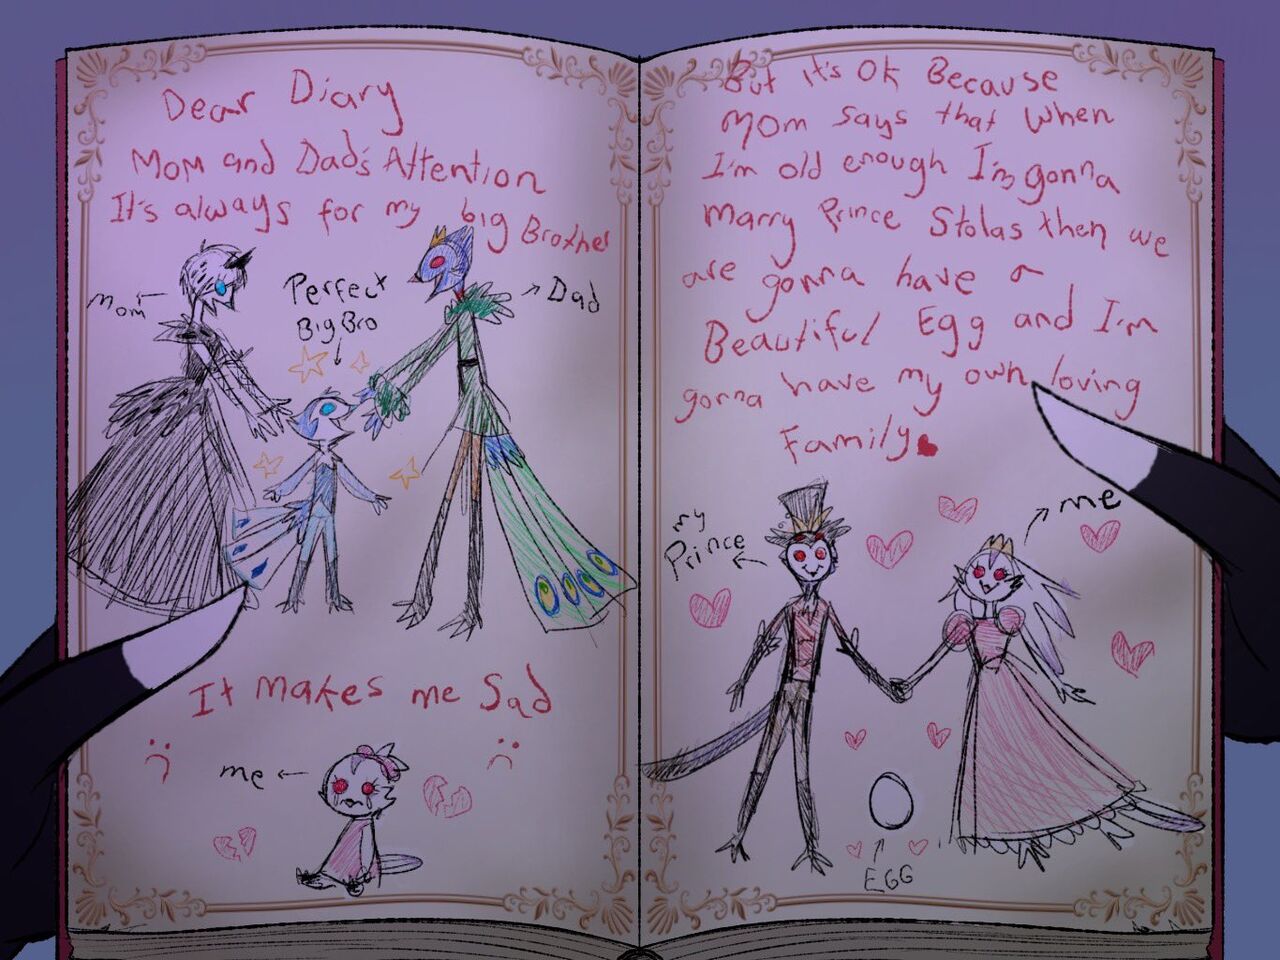 Dear Diary
Mom and Dad's Attention
It's always for my big Brother
Mom
Perfect
Big Bro
Dad
It makes me Sad
:(
):
me
But it's Ok Because
Mom says that when
I'm old enough I'm gonna
Marry Prince Stolas then we
are gonna have a
Beautiful Egg and I'm
gonna have my own loving
Family
my
Prince
me
EGG